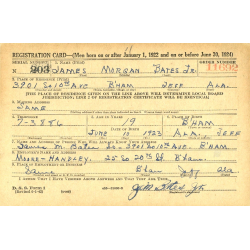 REGISTRATION CARD—(Men born on or after January 1, 1922 and on or before June 30, 1924)
SERIAL NUMBER 1. NAME (Print) ORDER NUMBER
303 JAMES MORGAN BATES JR.
2. PLACE OF RESIDENCE (Print)
3901 50 AVE BHAM JEFF ALA.
[THE PLACE OF RESIDENCE GIVEN ON THE LINE ABOVE WILL DETERMINE LOCAL BOARD
JURISDICTION; LINE 2 OF REGISTRATION CERTIFICATE WILL BE IDENTICAL]
3. MAILING ADDRESS
SAME
4. TELEPHONE 5. AGE IN YEARS 6. PLACE OF BIRTH
7-3886 19 BHAM
DATE OF BIRTH
JUNE 10 1923 ALA. JEFF
7. NAME AND ADDRESS OF PERSON WHO WILL ALWAYS KNOW YOUR ADDRESS
AVE. BHAM
8. EMPLOYER'S NAME AND ADDRESS
MOORE-HANDLEY 20th St. Bham
9. PLACE OF EMPLOYMENT OR BUSINESS
Same Bham Ala
I AFFIRM THAT I HAVE VERIFIED ABOVE ANSWERS AND THAT THEY ARE TRUE.
D. S. S. Form 1